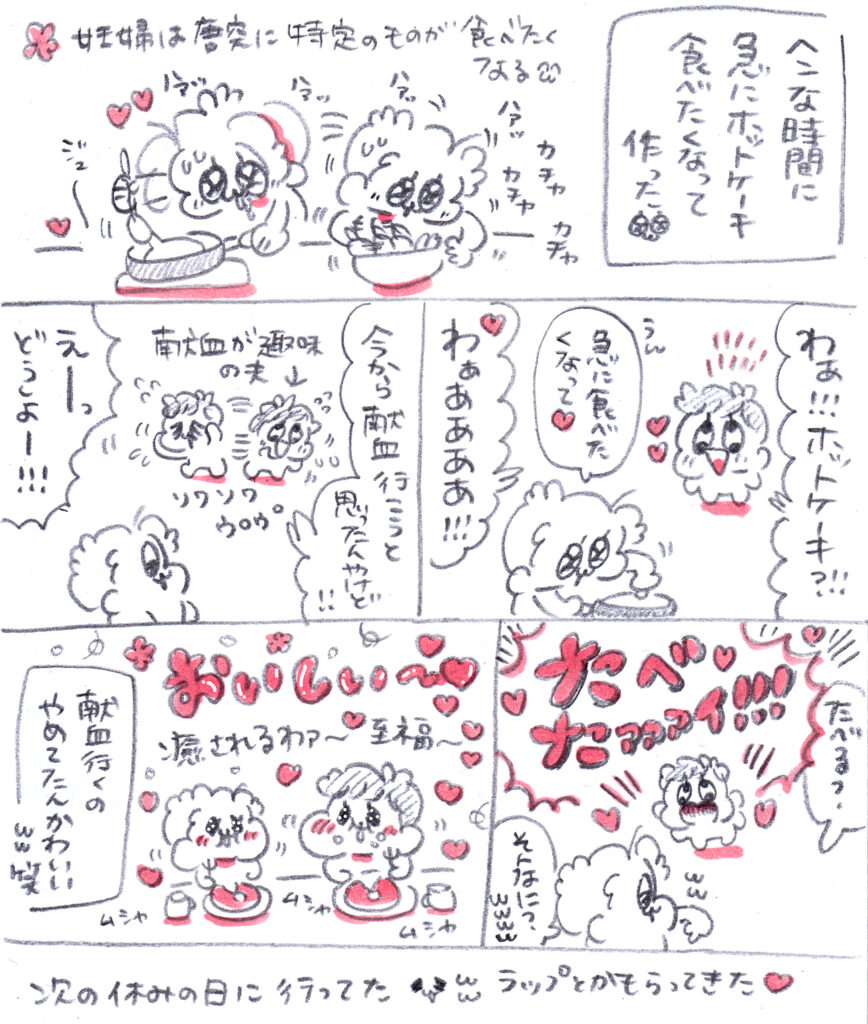 妊婦は唐突に特定のものが食べたく
なる
ヘンな時間に
急にホットケーキ
食べたくなって
作った
ハァッ
ハァッ
ハァッ
ハァッ
カチャ
カチャ
カチャ
ジュー
わぁ!!!ホットケーキ?!!
うん
急に食べた
くなって♥
わぁぁぁぁぁ!!!
今から献血行こうと
思ったんやけど!!
献血が趣味
の夫↓
ソワソワ
ウロウロ
えーっ
どうしよー!!!
たべる?
たべ
たァァァイ!!!
そんなに?
www
おいしい〜♥
癒されるわァ〜 至福〜
ムシャ
ムシャ
ムシャ
献血行くの
やめてたんかわいい
www笑
次の休みの日に行ってた ww ラップとかもらってきた♥